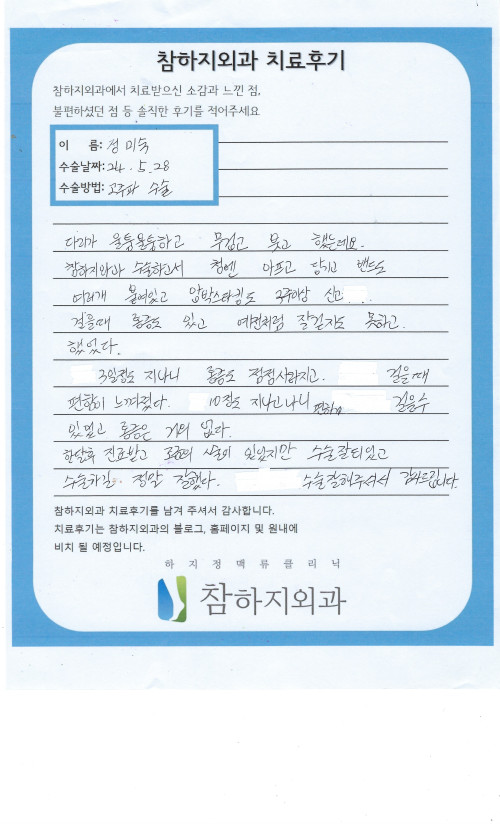 참하지외과 치료후기
참하지외과에서 치료받으신 소감과 느낀 점,
불편하셨던 점 등 솔직한 후기를 적어주세요
이 름: 정미숙
수술날짜: 24. 5. 28
수술방법: 고주파 수술
다리가 울퉁불퉁하고 무겁고 붓고 했는데요.
참하지외과 수술하고서 첨엔 아프고 당기고 밴드도
여러개 붙여있고 압박스타킹도 2주이상 신고...
걸을때 통증도 있고 예전처럼 잘걷지도 못하고.
했었다.
3일정도 지나니 통증도 점점사라지고. 걸을때
편함이 느껴졌다. 10정도 지나고나니 편하게 걸을수
있었고 통증은 거의 없다.
한달후 진료받고 조금의 시술이 있었지만 수술잘되있고
수술하길 정말 잘했다. 수술잘해주셔서 감사드립니다.
참하지외과 치료후기를 남겨 주셔서 감사합니다.
치료후기는 참하지외과의 블로그, 홈페이지 및 원내에
비치 될 예정입니다.
하지정맥류클리닉
참하지외과